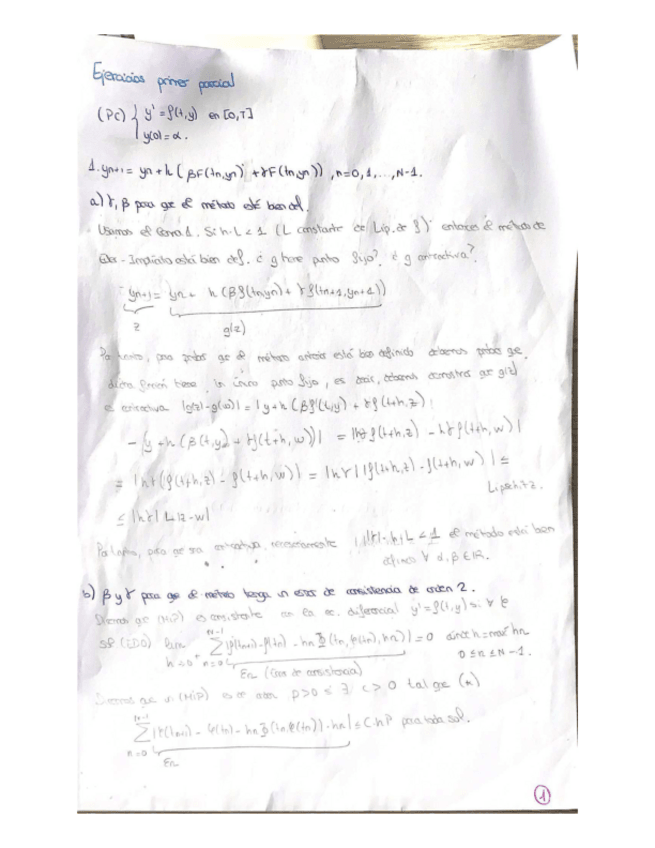 Ejercicios primer parcial
(PC) { y' = f(t,y) en [0,T]
y(0) = α.
1. yn+1 = yn + h ( βF(tn,yn) + γF(tn,yn)) , n=0,1,...,N-1.
a) γ, β para que el método esté bien def.
Usamos el Si h·L < 1 (L constante de Lip. de f) entonces el método de
Euler-Implícito está bien def. ¿ g tiene punto fijo? ¿ g contractiva?
yn+1 = yn + h (βf(tn,yn) + γf(tn+1,yn+1))
z g(z)
Por tanto, para probar que el método anterior está bien definido debemos probar que
dicha tiene un único punto fijo, es decir, debemos demostrar que g(z)
es contractiva |g(z)-g(w)| = |y+h (βf(t,y) + γf(t+h,z))
- (y+h (β(t,y) + γf(t+h,w))| = |hγf(t+h,z) - hγf(t+h,w)|
= |hγ(f(t+h,z) - f(t+h,w))| = |hγ| |f(t+h,z) - f(t+h,w)| ≤
Lipschitz.
≤ |hγ| L|z-w|
Por tanto, para que sea contractiva, necesariamente |γ|·h·L < 1 el método está bien
definido ∀ α,β∈ℝ.
b) β y γ para que el método tenga un error de consistencia de orden 2.
Diremos que (MIP) es consistente con la ec. diferencial y'=f(t,y) si ∀ φ
sol (EDO) lim h→0+ N-1 Σ n=0 |φ(tn+1)-φ(tn) - hn Φ(tn,φ(tn),hn)| = 0 donde h=max hn
0≤n≤N-1.
En (Error de consistencia)
Diremos que un (MIP) es de orden p>0 si ∃ C>0 tal que (*)
N-1 Σ n=0 |φ(tn+1) - φ(tn) - hn Φ(tn,φ(tn))·hn| ≤ C·hP para toda sol.
En
1